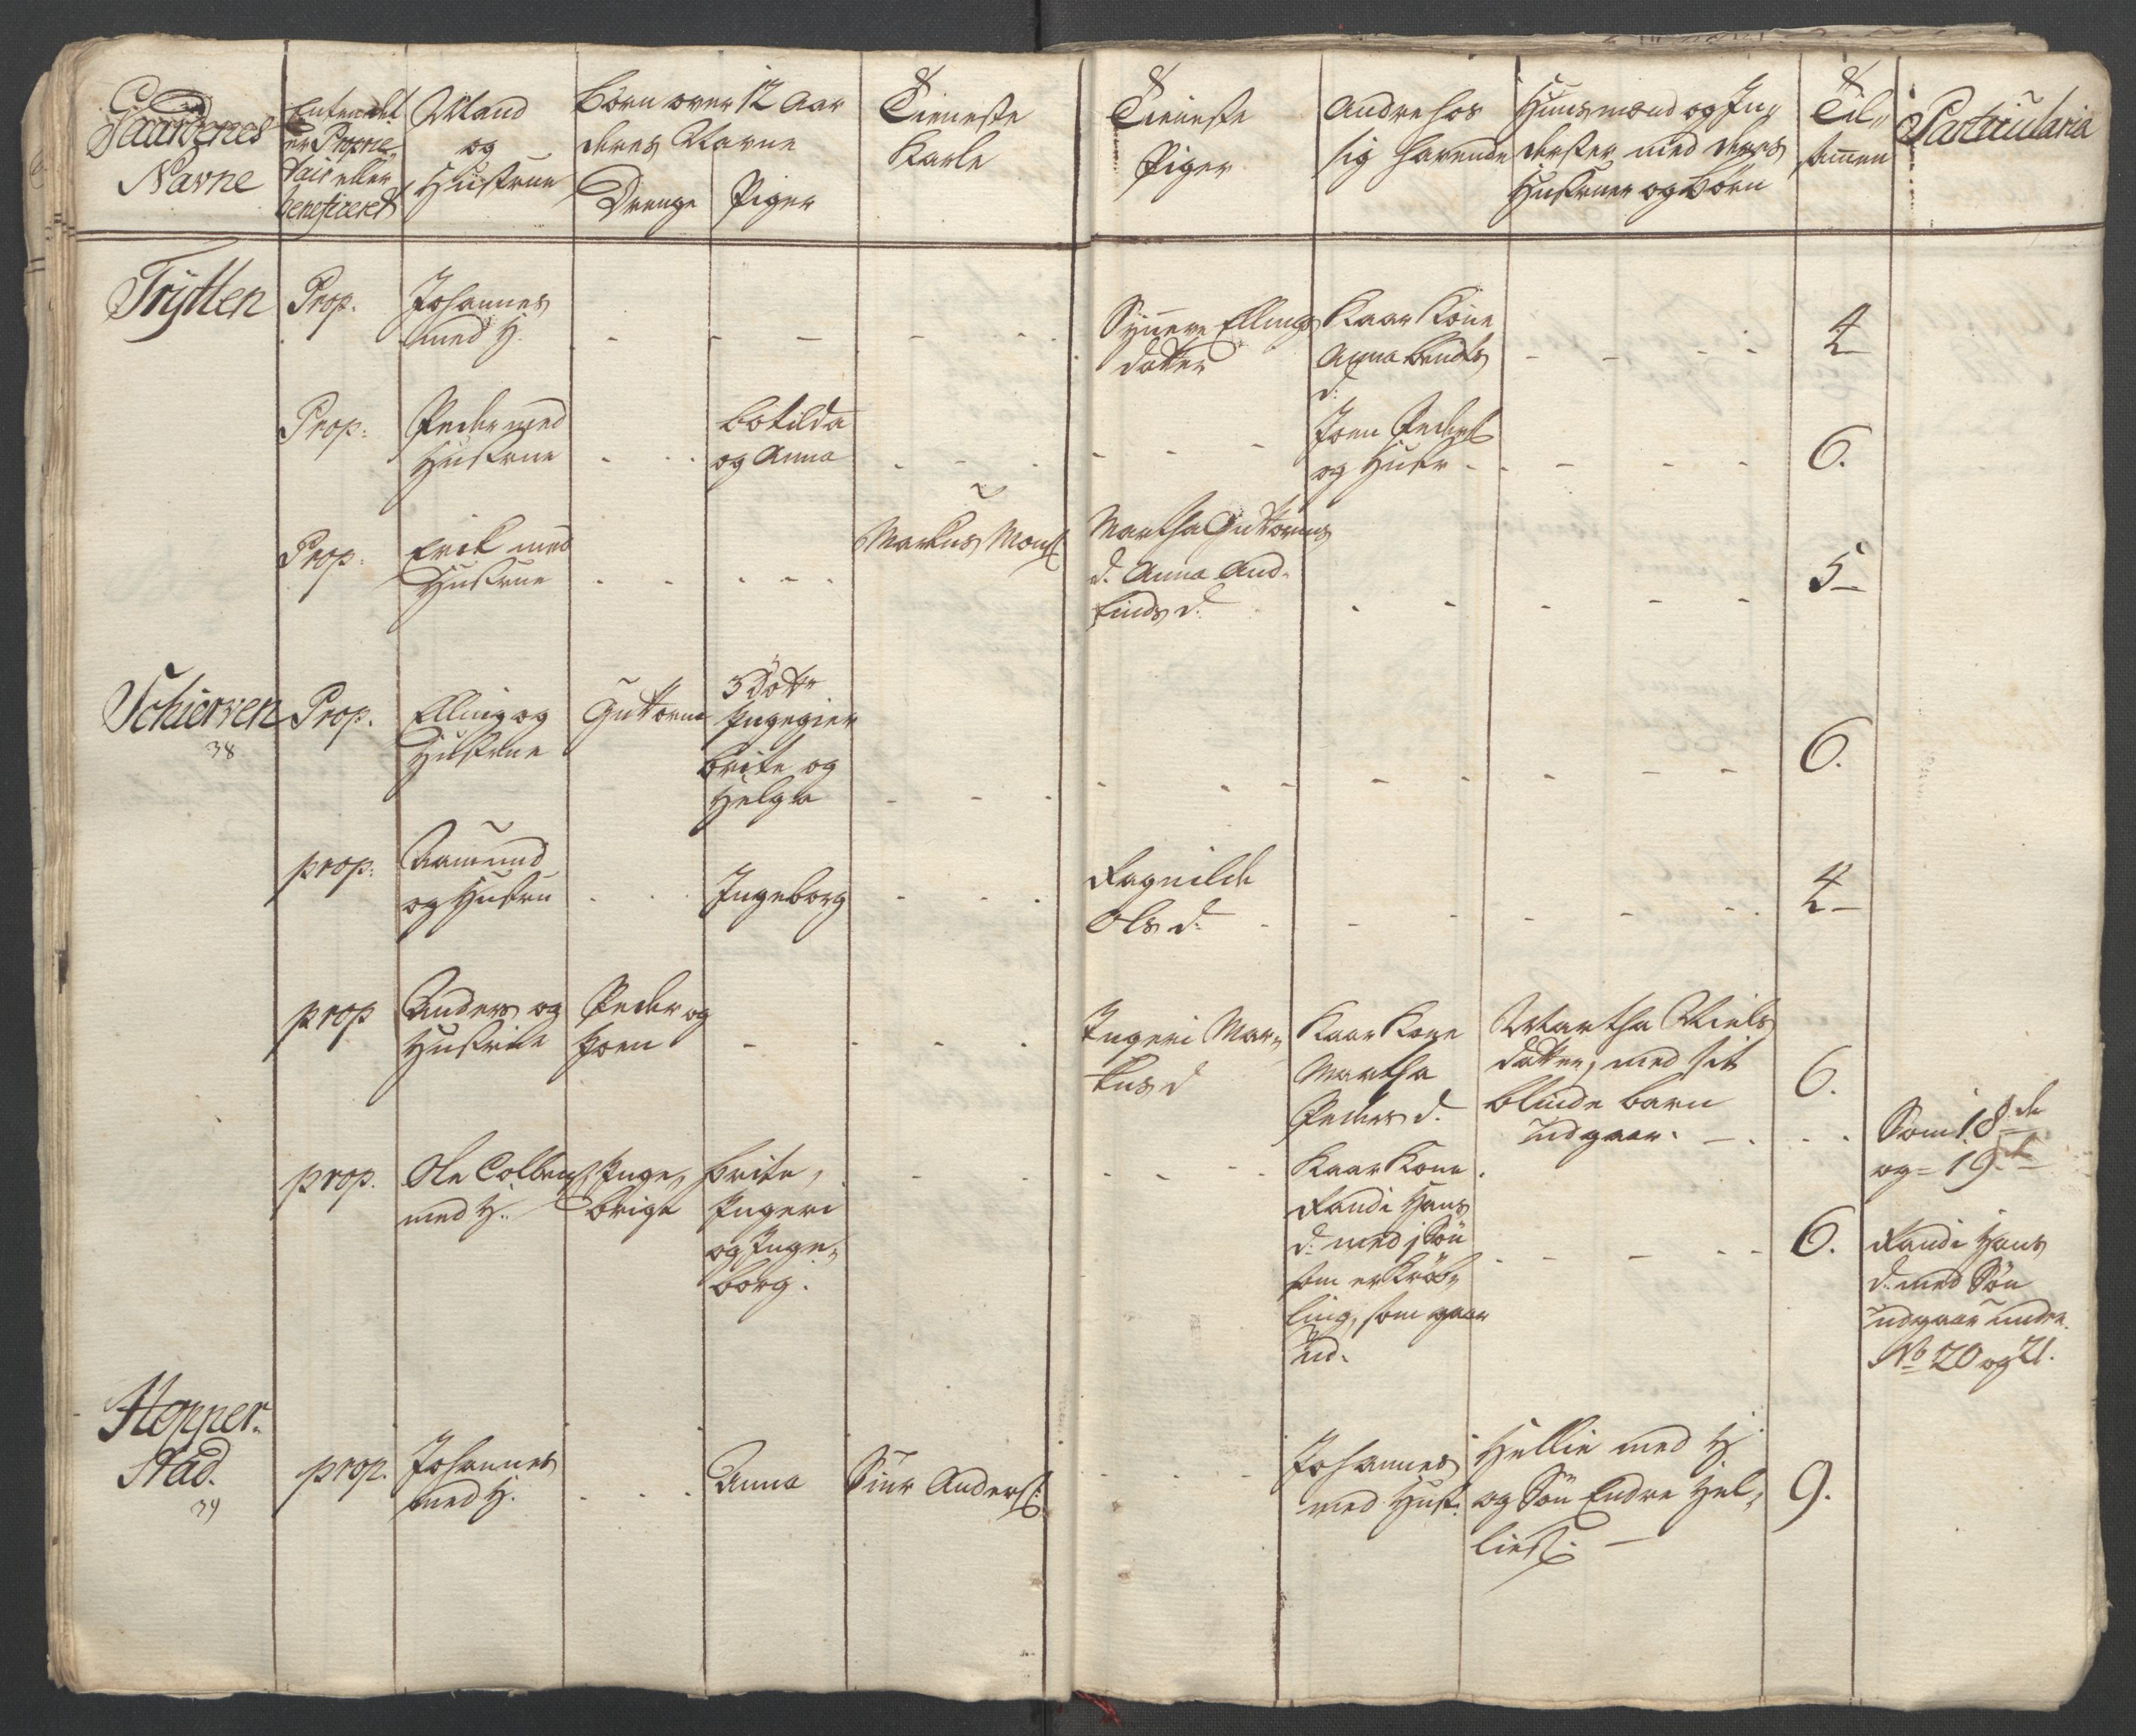 Gaardenes
Navne
Enten det
er Proprie-
tair eller
beneficeret
Mand
og
Hustrue
Børn over 12 Aar
deres Navne
Drenge
Piger
Tieneste
Karle
Tieneste
Piger
Andre hos
sig havende
Huusmænd og In,,
derster med deres
Hustruer og børn
Til,,
sammen
Particularia
Trÿtten
Prop.
Johannes
med H.
Synneve Ellings
datter
Kaar Kone
Anna Bendts
d:
4
Prop:
Peder med
Hustrue
botilda
og Anna
Joen Peders
og Hustr
6.
Prop:
Erik med
Hustrue
Markus Mons
Martha Guttorms
d. Anna And-
finds d.
5
Schierven
38
Prop.
Elling og
Hustrue
Guttorm
3 Døttr
Ingegier
brite og
Helga
6.
prop:
Aamund
og Hustru
Ingeborg
Ragnilde
Ols d:
4
prop
Anders og
Hustrue
Peder og
Joen
Ingeri Mar,,
kus d
Kaar Kone
Martha
Peders d.
Martha Niels
datter, med sit
blinde barn
udgaar.
6.
Som 18de
og 19de
prop.
Ole Colbens
med H.
Inge,,
brigt
brite,
Ingeri
og Inge,,
borg.
Kaar Kone
Randi Hans
d. med j Søn
som er Krøb,,
ling, som gaar
ud.
6.
Randi Hans
d. med Søn
udgaar under
No 20 og 21.
Hopper-
stad.
39
prop.
Johannes
med H.
Anna
Siur Anders:
Johannes
med Hust.
Hellie med H
og Søn Endre Hel,,
lies:
9.